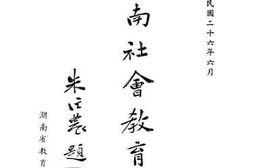 民國二十六年六月
南社會教育
朱經農題
湖南省教育